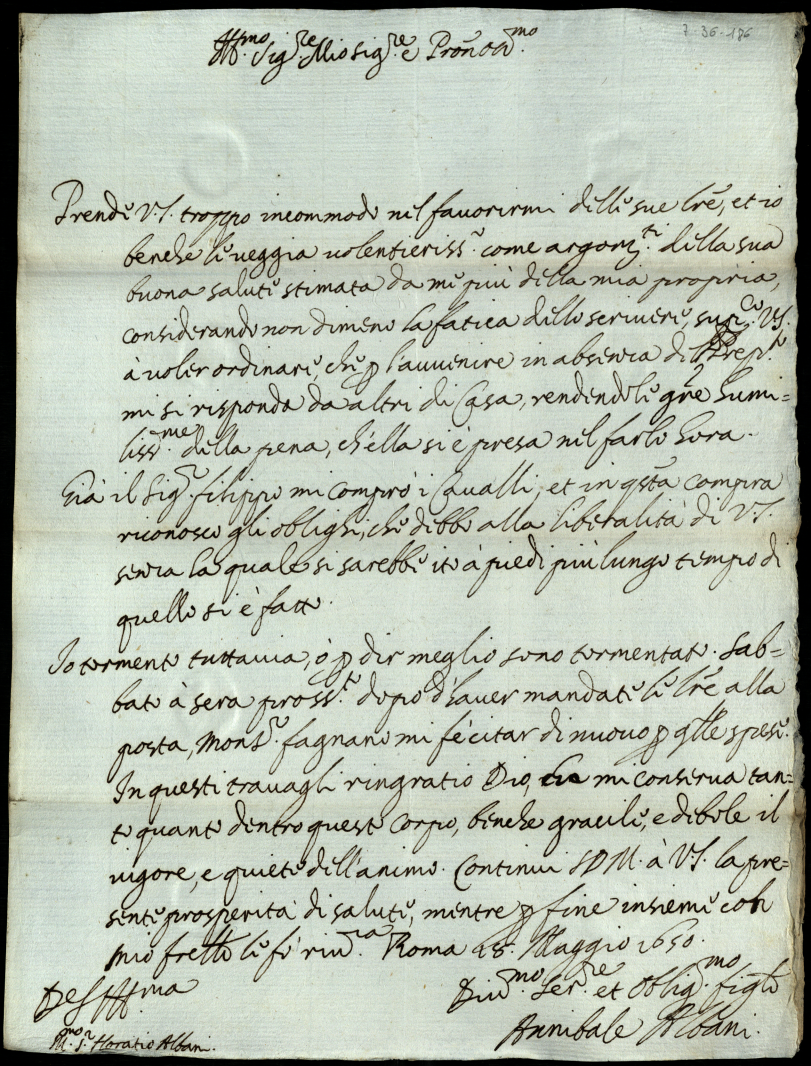 7-36-186
Ill.mo Sig.re Mio Sig.re e Pron Oss.mo
Prende V.S. troppo incommodo nel favorirmi delle sue lre, et io
benche le veggia volentieriss.e come argom.ti della sua
buona salute stimata da me più della mia propria,
considerando nondimeno la fatica dello scrivere, sup.co V.S.
à voler ordinare, che p l'avvenire in absenza del
mi si risponda da altri di Casa, rendendole gre humi=
liss.me della pena, ch'ella si è presa nel farlo hora.
Già il Sig.r Filippo mi comprò i Cavalli, et in qsta compra
riconosco gli oblighi, che debbo alla liberalità di V.S.
senza la quale si sarebbe ito à piedi più lungo tempo di
quello si è fatto.
Io tormento tuttavia, ò p dir meglio sono tormentato. Sab=
bato à sera pross.o dopo d'haver mandate le lre alla
posta, Mons.r Fagnano mi fè citar di nuovo p qlle spese.
In questi travagli ringratio Dio, che mi conserva tan=
to quanto dentro questo corpo, benche gracile, e debole il
vigore, e quiete dell'animo. Continui S.D.M. à V.S. la pre=
sente prosperità di salute, mentre p fine insieme con
mio frello le fò riv.za Roma 18. Maggio 1650.
Di V.S. Ill.ma
Div.mo Ser.re et Oblig.mo figlo
Annibale Albani.
S.r Horatio Albani.